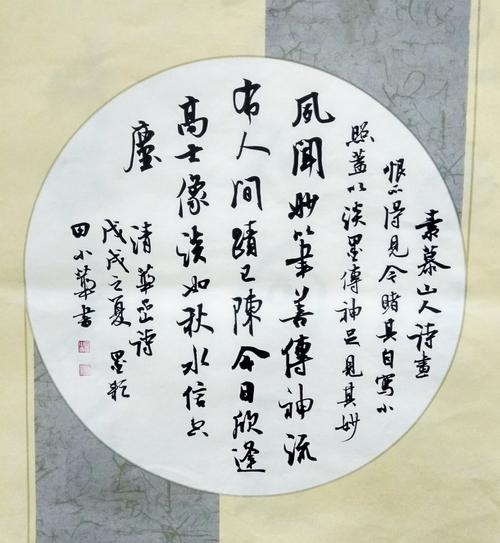 素慕山人诗畫
恨不得見今睹其自寫小
照蓋以淡墨傳神足見其妙
夙聞妙筆善傳神流
布人間蹟已陳今日欣逢
高士像淡如秋水信出
塵
清 華嵒诗
戊戌之夏 墨
田小華書